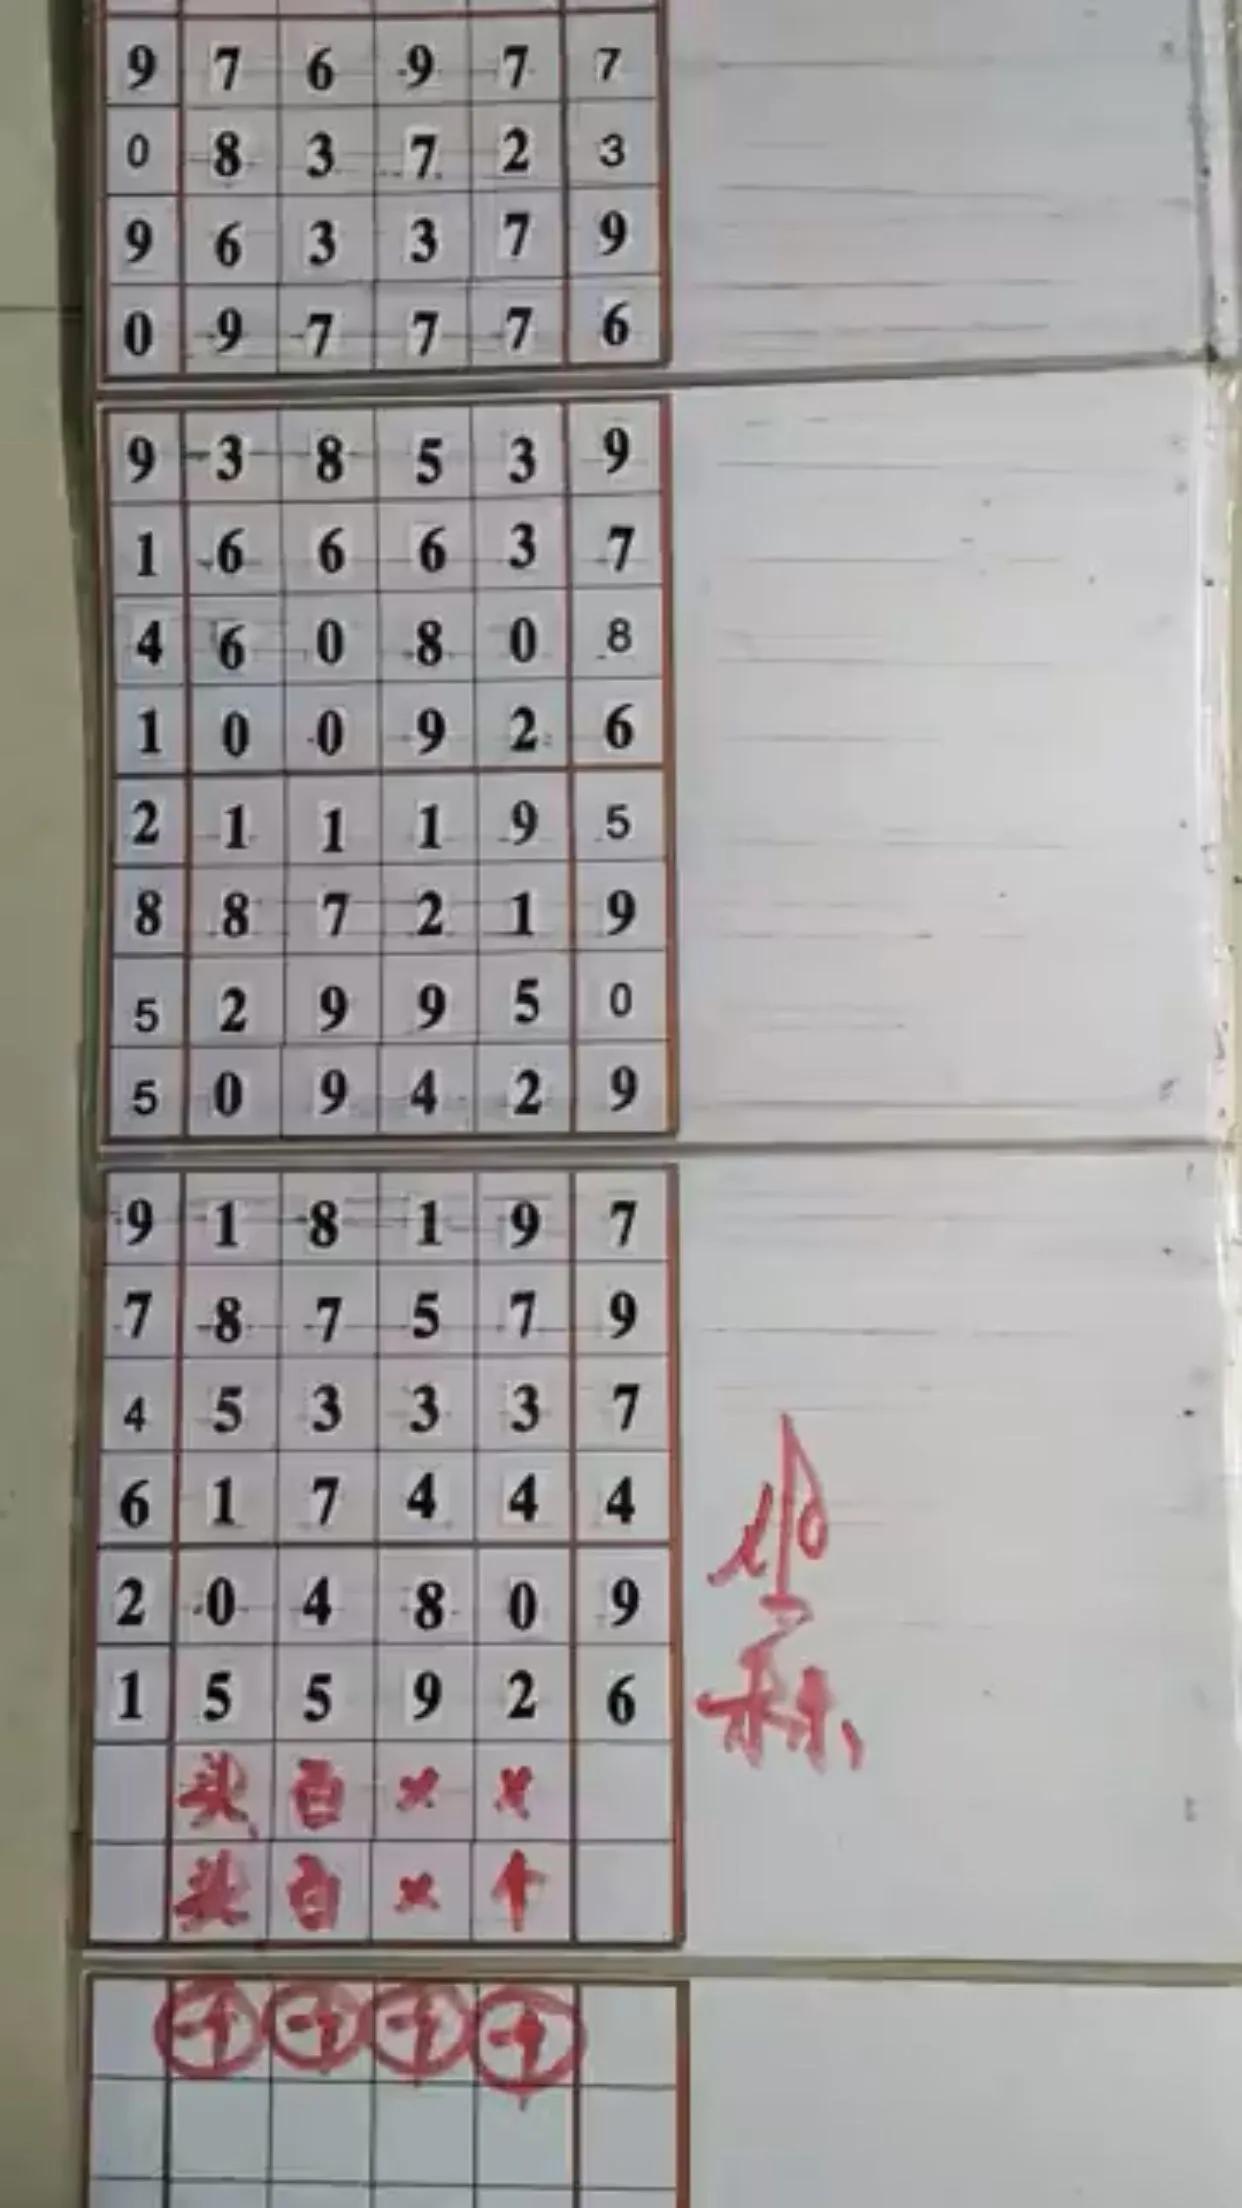 9 7 6 9 7 7
0 8 3 7 2 3
9 6 3 3 7 9
0 9 7 7 7 6
9 3 8 5 3 9
1 6 6 6 3 7
4 6 0 8 0 8
1 0 0 9 2 6
2 1 1 1 9 5
8 8 7 2 1 9
5 2 9 9 5 0
5 0 9 4 2 9
9 1 8 1 9 7
7 8 7 5 7 9
4 5 3 3 3 7
6 1 7 4 4 4
2 0 4 8 0 9
1 5 5 9 2 6
头 百 × ×
头 百 × 个